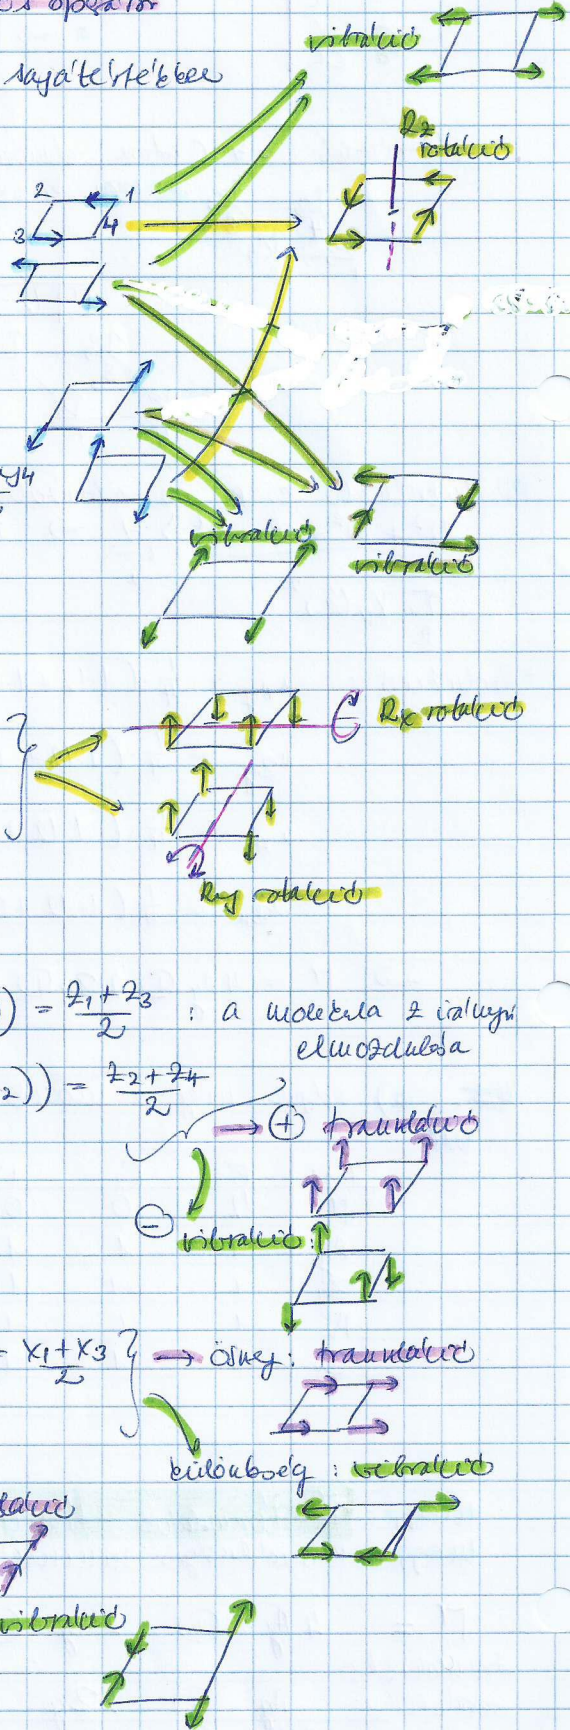 s operátor
vibráció
sajátértékkel
Rz
rotáció
2 1
3 4
y4
vibráció
vibráció
Rx rotáció
Ry rotáció
) = z1 + z3 / 2 : a molekula z irányú
elmozdulása
2)) = z2 + z4 / 2
→ ⊕ transzláció
⊖ vibráció:
= x1 + x3 / 2 } → összeg: transzláció
különbség: vibráció
láció
vibráció